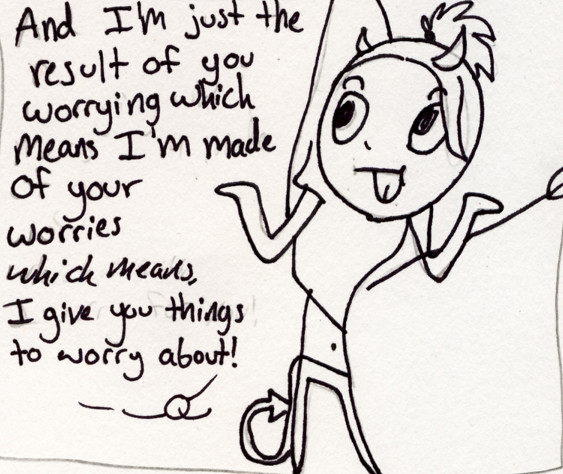 And I'm just the
result of you
worrying which
means I'm made
of your
worries
which means,
I give you things
to worry about!